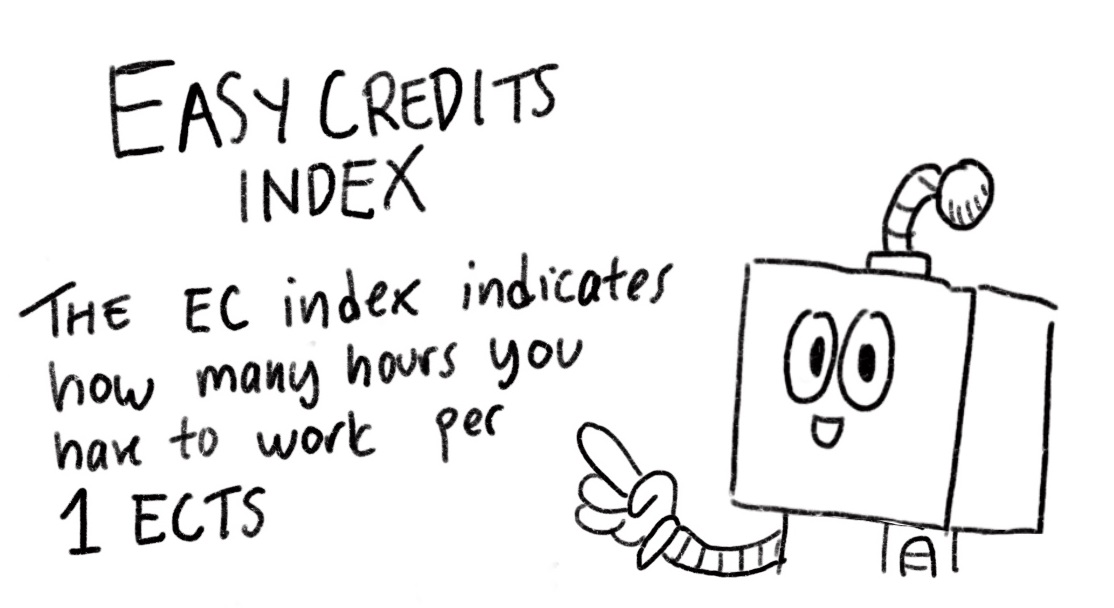 EASY CREDITS
INDEX
THE EC index indicates
how many hours you
have to work per
1 ECTS